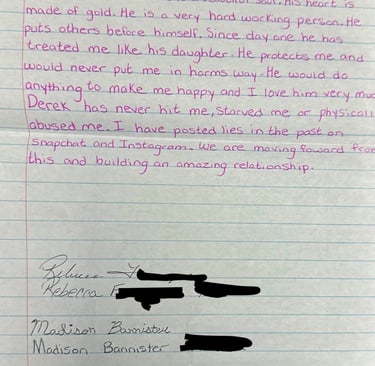 soul. His heart is
made of gold. He is a very hard working person. He
puts others before himself. Since day one he has
treated me like his daughter. He protects me and
would never put me in harms way. He would do
anything to make me happy and I love him very muc
Derek has never hit me, starved me or physicall
abused me. I have posted lies in the past on
snapchat and Instagram. We are moving foward from
this and building an amazing relationship.
Rebecca F
Rebecca F
Madison Bannister
Madison Bannister